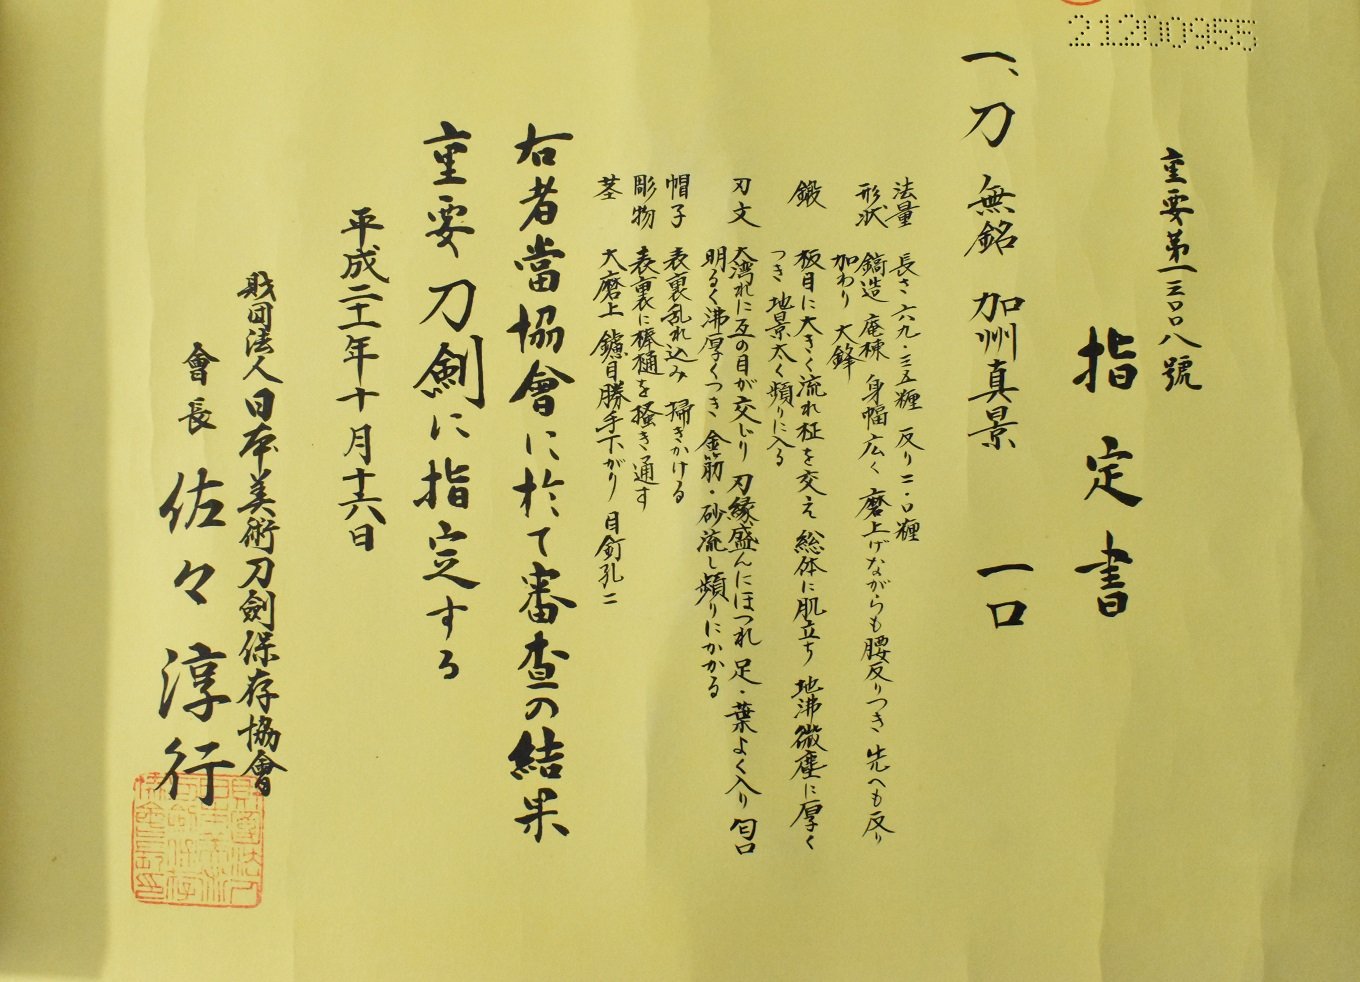 21200955
重要第一三〇〇八號
指定書
一、刀 無銘 加州真景 一口
法量 長さ六九・三五糎 反り二・〇糎
形状 鎬造 庵棟 身幅広く 磨上げながらも腰反りつき 先へも反り
加わり 大鋒
鍛 板目に大きく流れ柾を交え 総体に肌立ち 地沸微塵に厚く
つき 地景太く頻りに入る
刃文 大湾れに互の目が交じり 刃縁盛んにほつれ 足・葉よく入り 匂口
明るく沸厚くつき 金筋・砂流し頻りにかかる
帽子 表裏乱れ込み 掃きかける
彫物 表裏に棒樋を掻き通す
茎 大磨上 鑢目勝手下がり 目釘孔二
右者當協會に於て審査の結果
重要刀劍に指定する
平成二十一年十月十六日
財団法人日本美術刀劍保存協會
會長 佐々淳行